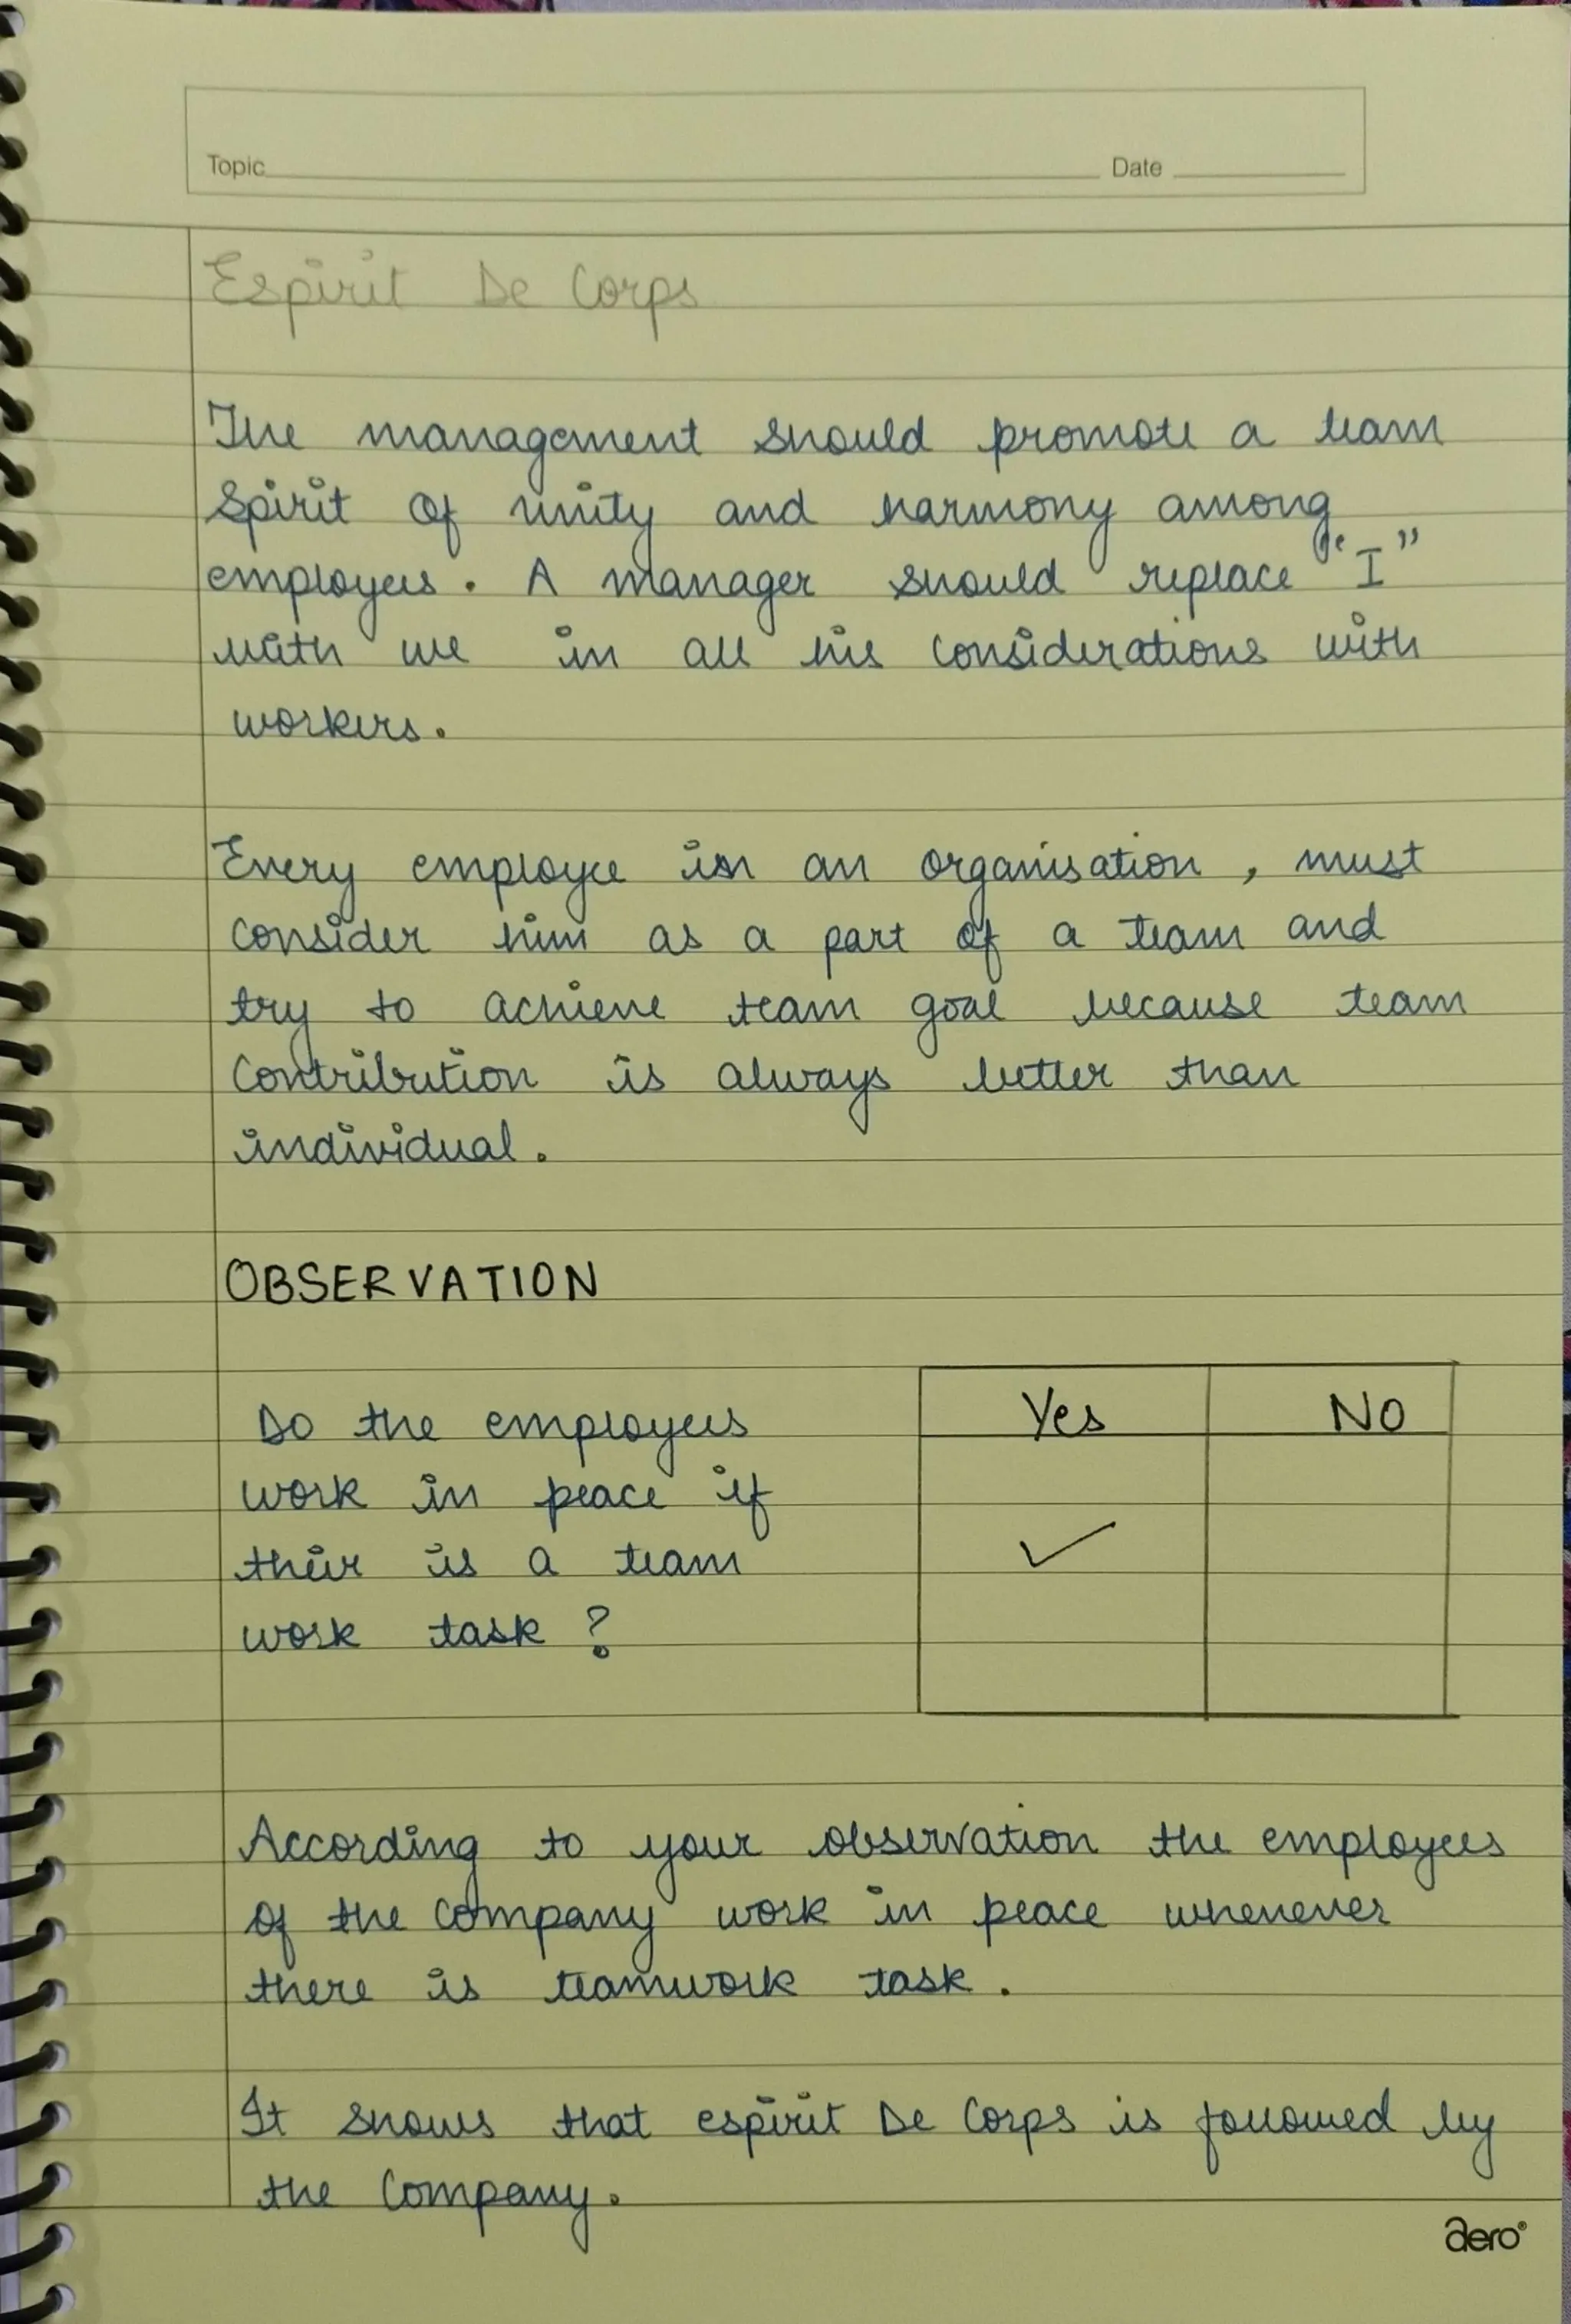 Topic Date
Espirit De Corps
The management should promote a team
Spirit of unity and harmony among
employees. A manager should replace "I"
with we in all his considerations with
workers.
Every employee in an organisation, must
consider him as a part of a team and
try to achieve team goal because team
contribution is always better than
individual.
OBSERVATION
Yes No
Do the employees
work in peace if
their is a team
✓
work task ?
According to your observation the employees
of the company work in peace whenever
there is teamwork task.
It shows that espirit De Corps is followed by
the Company.
aero®